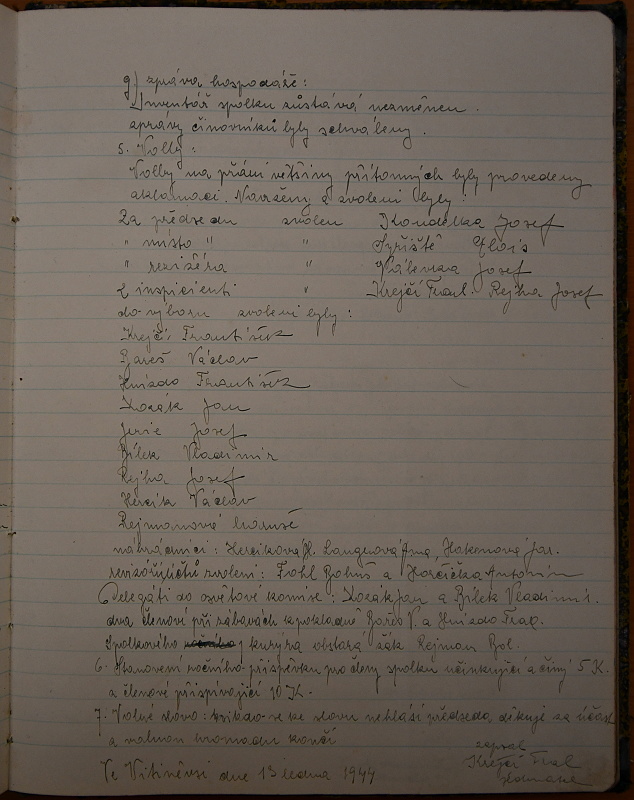 g) zpráva hospodáře:
Inventář spolku zůstává nezměněn.
zprávy činovníků byly schváleny.
5. Volby:
Volby na přání většiny přítomných byly provedeny
aklamací. Navrženi a zvoleni byly:
Za předsedu zvolen Koudelka Josef
" místo " " Syřiště Alois
" režiséra " Válenka Josef
Za inspicienti " Krejčí Frant. Rejha Josef
do výboru zvoleni byly:
Krejčí František
Bareš Václav
Hnízdo František
Kozák Jan
Jerie Josef
Bílek Vladimír
Rejha Josef
Hercík Václav
Rejmanová
náhradníci: Hercíková Langnová Anna, Hakenová Jar.
revisóři účtů zvoleni: Fohl Bohuš a Horčička Antonín
Delegáti do osvětové komise: Kozák Jan a Bílek Vladimír.
dva členové při zábavách k pokladně Bareš V. a Hnízdo Frat.
Spolkového kurýra obstará žák Rejman Boh.
6. Stanovení ročního příspěvku pro členy spolku účinkující a činý 5 K.
a členové přispívající 10 K.
7. Volné slovo: nikdo se ke slovu nehlásí předseda děkuje za účast
a valnou hromadu končí
zapsal
Krejčí Frat
Ve Vitiněvsi dne 13 ledna 1944